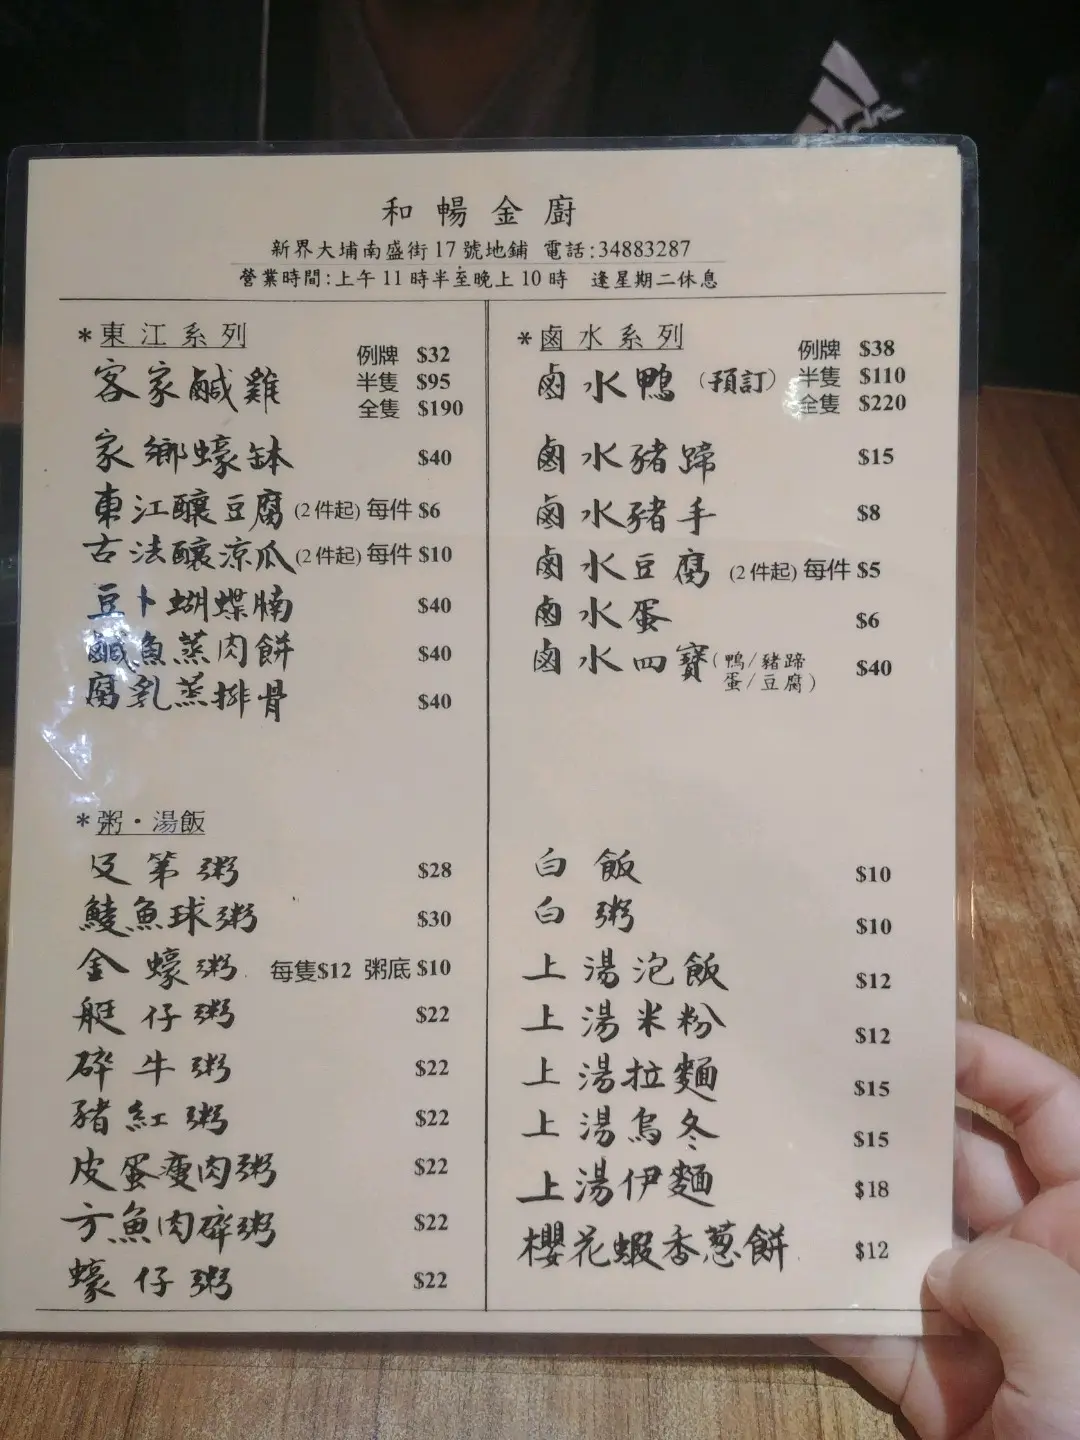 和暢金廚
新界大埔南盛街17號地鋪 電話:34883287
營業時間:上午11時半至晚上10時 逢星期二休息
*東江系列
客家鹹雞 例牌 $32
半隻 $95
全隻 $190
家鄉蠔缽 $40
東江釀豆腐(2件起) 每件 $6
古法釀涼瓜(2件起) 每件 $10
豆卜蝴蝶腩 $40
鹹魚蒸肉餅 $40
腐乳蒸排骨 $40
*鹵水系列
鹵水鴨(預訂) 例牌 $38
半隻 $110
全隻 $220
鹵水豬蹄 $15
鹵水豬手 $8
鹵水豆腐 (2件起) 每件 $5
鹵水蛋 $6
鹵水四寶(鴨/豬蹄 $40
蛋/豆腐)
*粥·湯飯
及第粥 $28
鯪魚球粥 $30
金蠔粥 每隻$12 粥底 $10
艇仔粥 $22
碎牛粥 $22
豬紅粥 $22
皮蛋瘦肉粥 $22
方魚肉碎粥 $22
蠔仔粥 $22
白飯 $10
白粥 $10
上湯泡飯 $12
上湯米粉 $12
上湯拉麵 $15
上湯烏冬 $15
上湯伊麵 $18
櫻花蝦香葱餅 $12